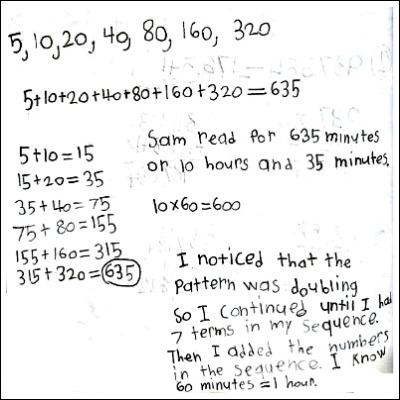 5, 10, 20, 40, 80, 160, 320
5+10+20+40+80+160+320=635
5+10=15
15+20=35
35+40=75
75+80=155
155+160=315
315+320=635
Sam read for 635 minutes
or 10 hours and 35 minutes.
10×60=600
I noticed that the
Pattern was doubling
So I continued until I had
7 terms in my sequence.
Then I added the numbers
in the sequence. I know
60 minutes=1 hour.